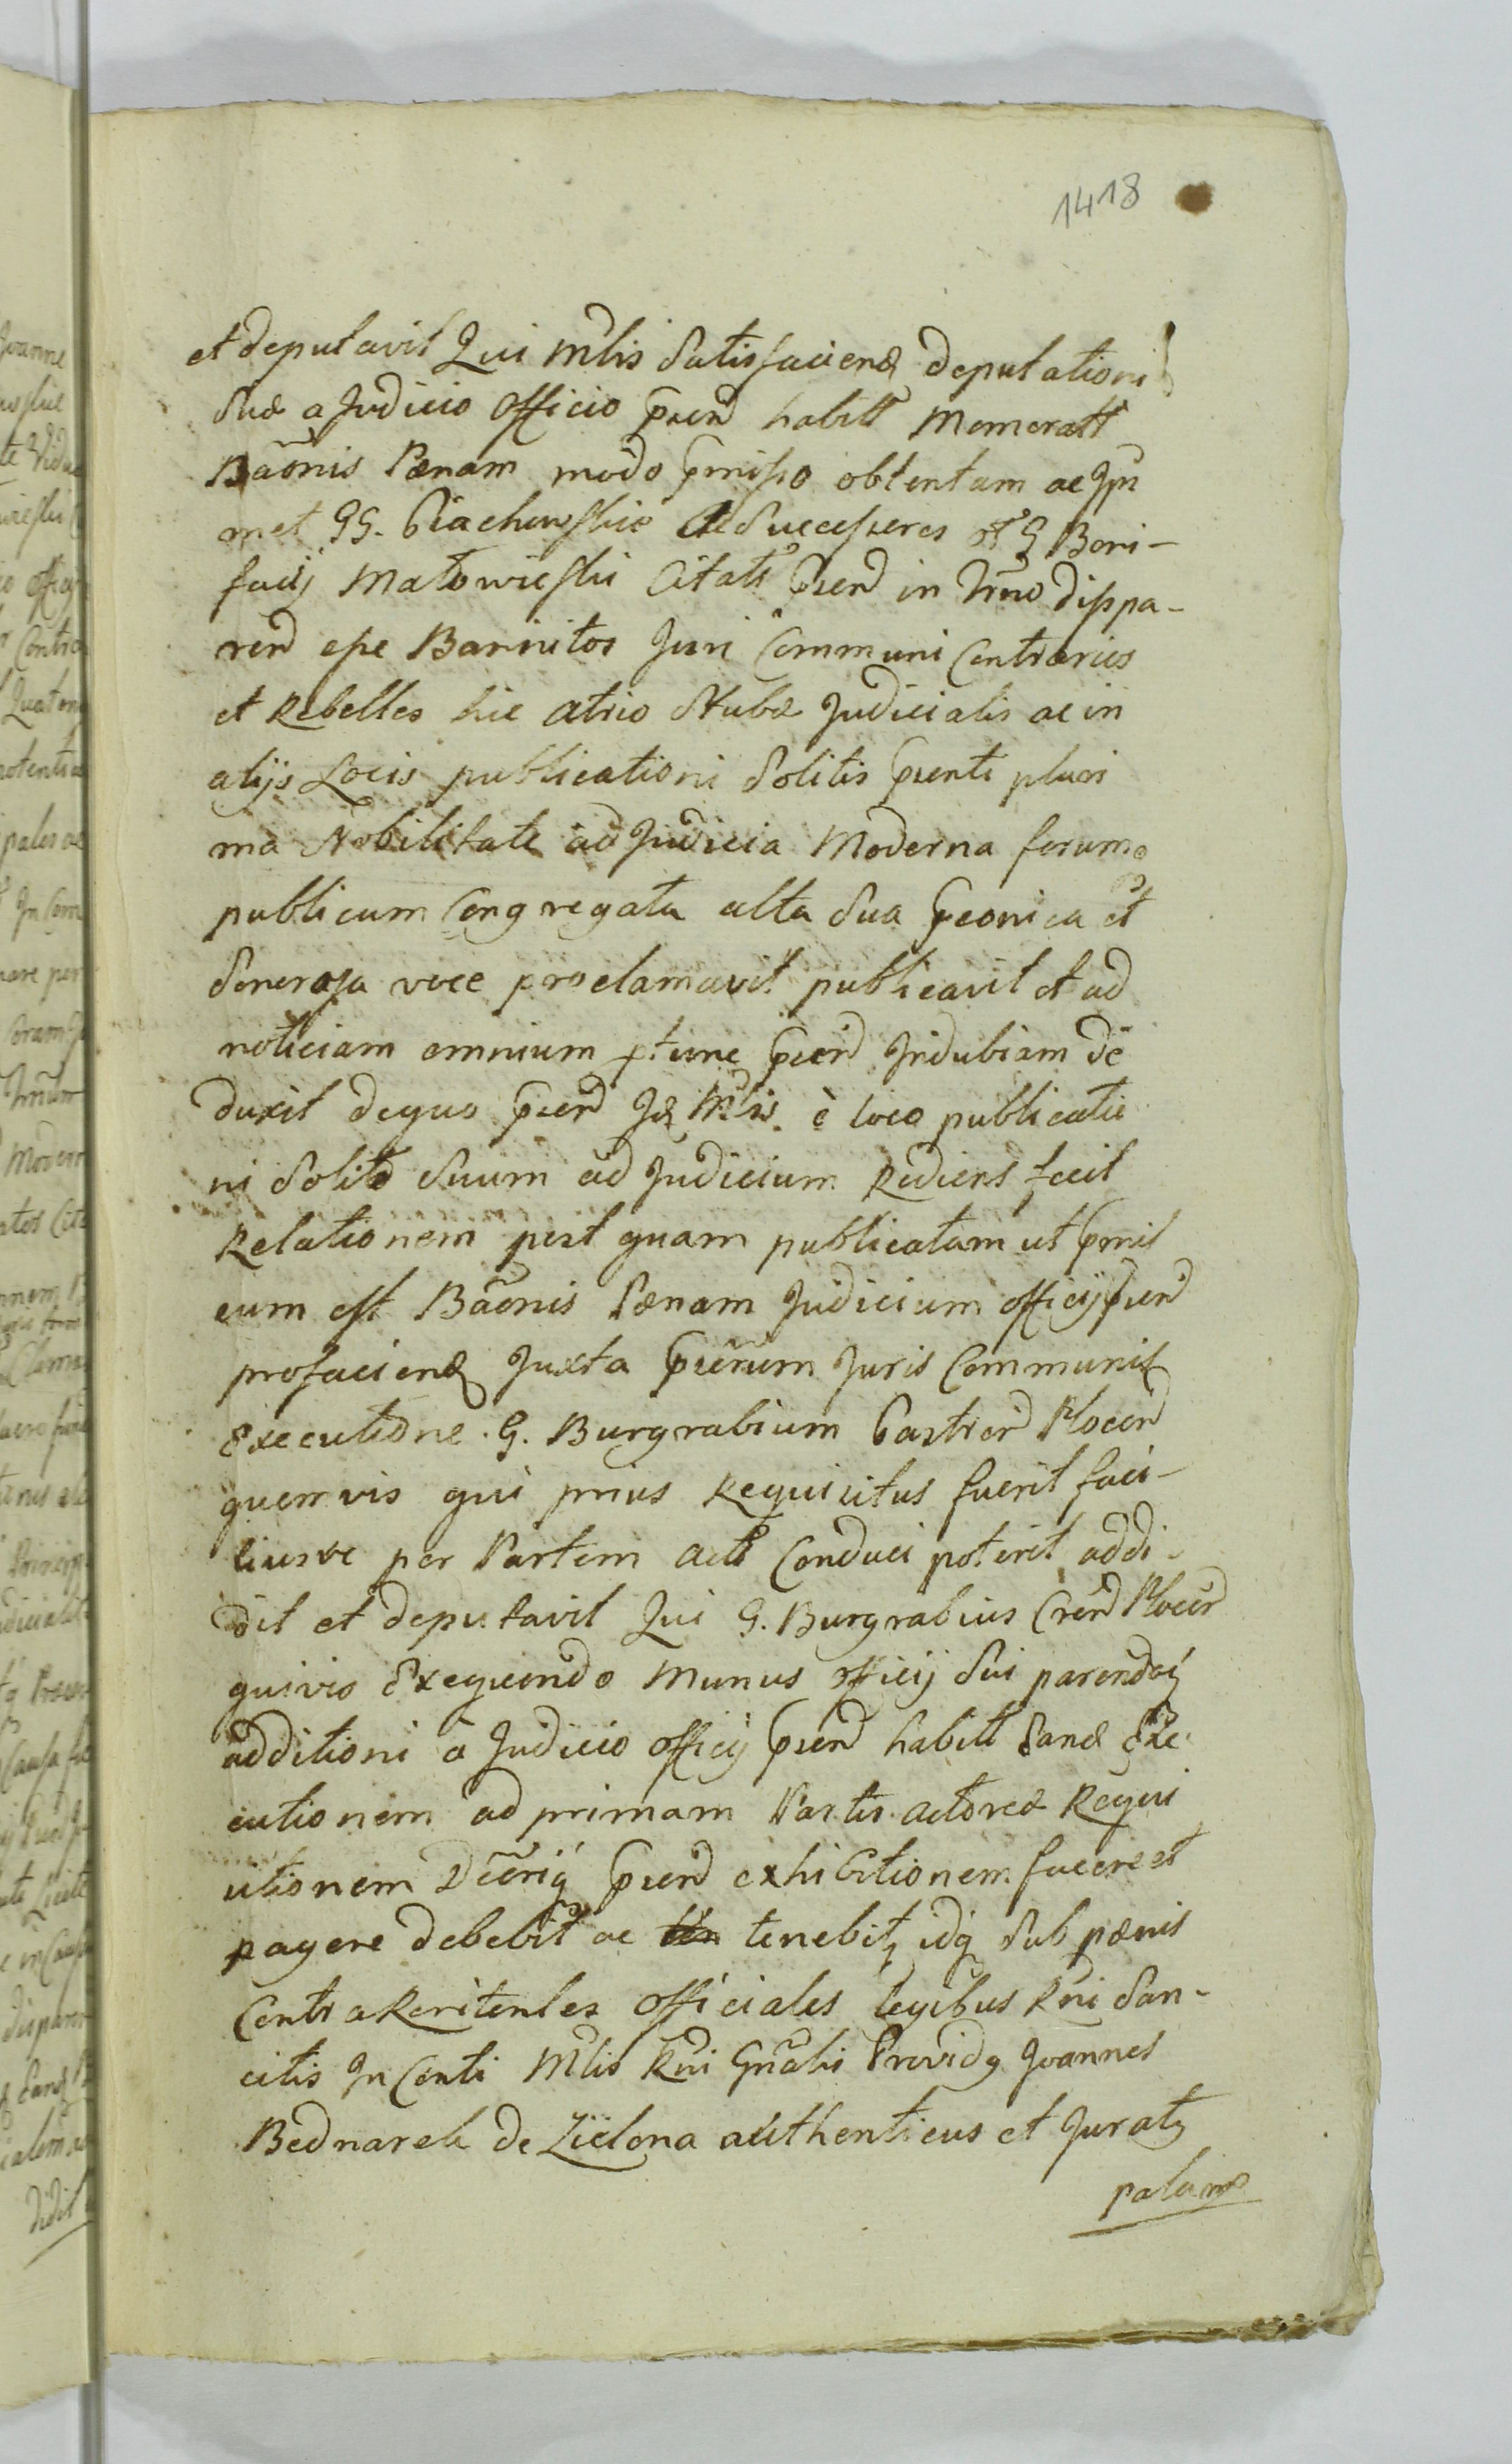 1418
et deputavit Qui Mlis Satisfaciend deputationi
Suæ a Judicio Officio pnend habitt Memoratt
Bãonis Pænam modo pmisso obtentam ac Ipsi
met GG. Ciachowskie ac Successores ol G Boni-
facij Matowieski Citatt Pnend in Trno dispa-
rend esse Bannitos Juri Communi Contrarios
et Rebelles hic atrio Stubæ Judicialis ac in
alijs Locis publicationi Solitis pnenti pluri
ma Nobilitate ad Judicia Moderna forumq
publicum Congregata alta Sua pconica et
Sonorosa voce proclamavit publicavit et ad
noticiam omnium ptunc pnend Indubiam de
duxit dequo pnend Id Mlis è loco publicatio
ni Solito Suum ad Judicium Rediens fecit
Relationem post quam publicatam ut pmit
cum est Bãonis Pænam Judicium officij pnend
profaciend Juxta pnerum Juris Communis
Executione G. Burgrabium Castren Plocen
quemvis qui prius Requisitus fuerit faci-
liusve per Partem act Conduci poterit addi-
dit et deputavit Qui G. Burgrabius Cren Plocen
quivis Exequendo Munus officij Sui parendoq
additioni a Judicio officij pnend habitt Eand Exe-
cutionem ad primam Partis actoreæ Requi
sitionem Dcrniq pnend exhibitionem facere et
pagere debebit ac tenebit idq Sub pænis
Contra Renitentes Officiales legibus Rni San-
citis In Conti Mlis Rni Gnalis Providq Joannes
Bednarek de Zielona authenticus et Juratq
palamq